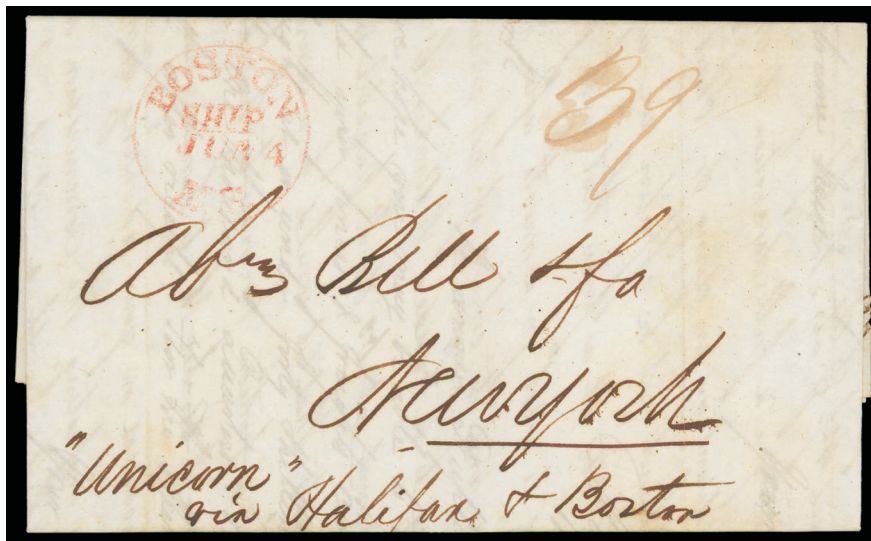 BOSTON
SHIP
JUN 4
39
Abm Bell &
New York
"Unicorn"
via Halifax & Boston